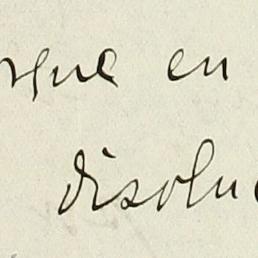 rque en
disolu